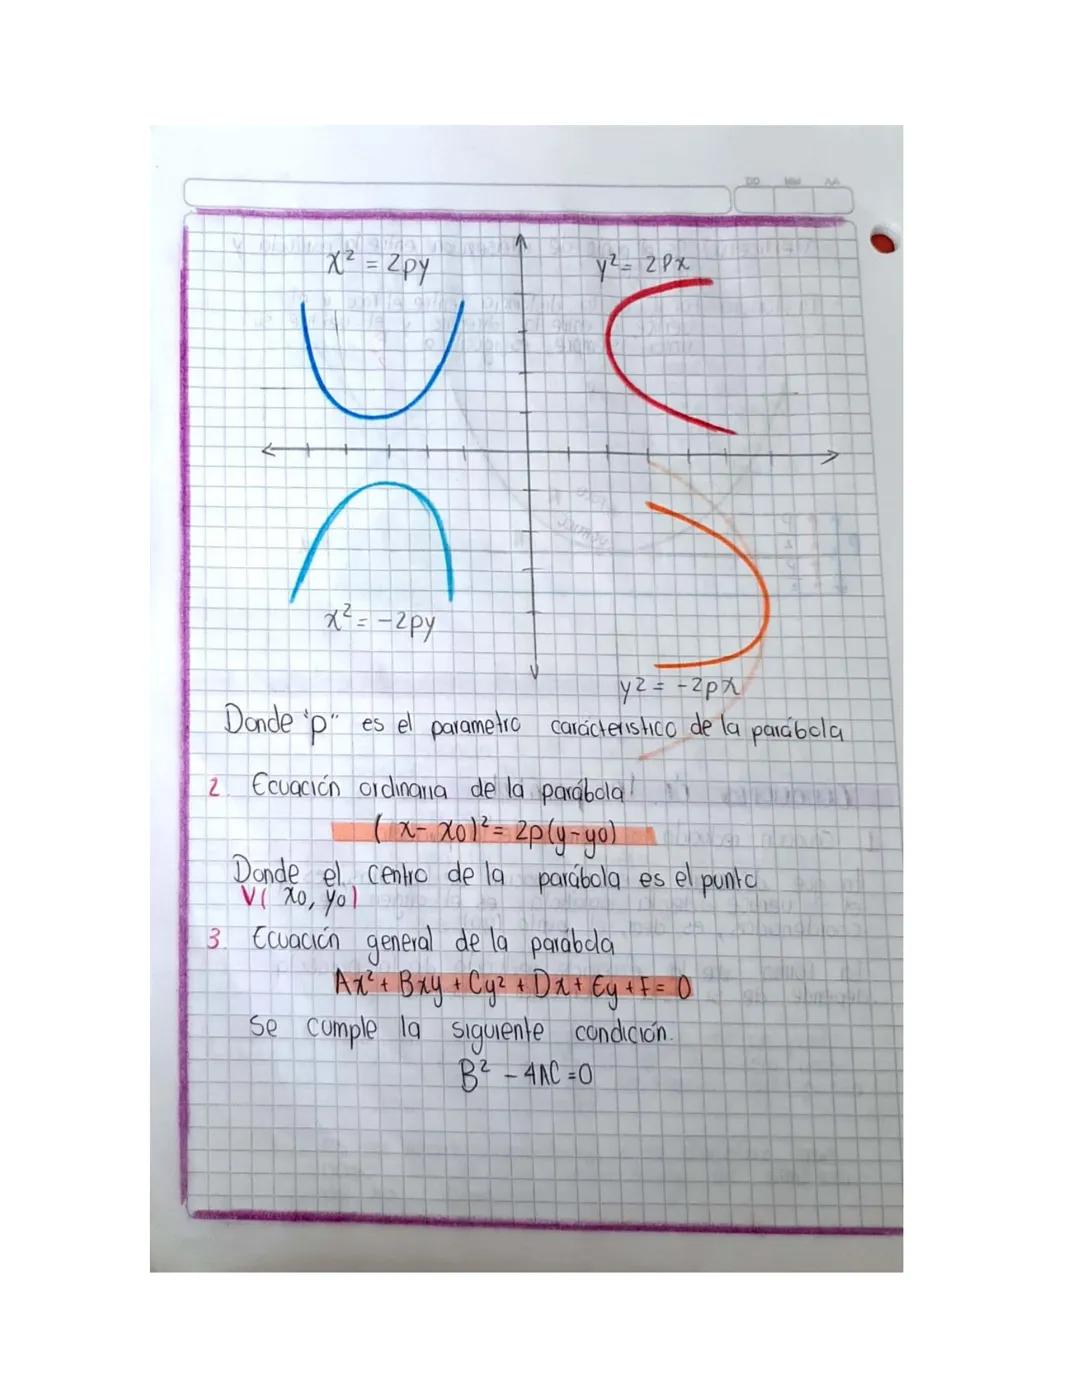 DD MM AA
x² = 2py
y² = 2Px
x² = -2py
y2 = -2px
Donde "p" es el parametro carácteristico de la parábola
2. Ecuación ordinaria de la parábola
(x - x0)² = 2p(y - y0)
Donde el centro de la parábola es el punto
V( x0, y0)
3. Ecuación general de la parábola
Ax² + Bxy + Cy² + Dx + Ey + F = 0
Se cumple la siguiente condición.
B² - 4AC = 0